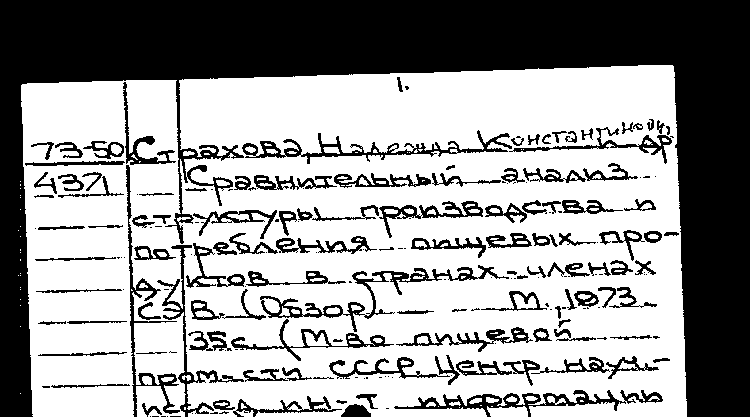 1.
73-50 Страхова, Надежда Константиновна и др.
4371 Сравнительный анализ
структуры производства и
потребления пищевых про-
дуктов в странах-членах
СЭВ. (Обзор). М., 1973.
35с. (М-во пищевой
пром-сти СССР. Центр. науч.-
исслед. ин-т информации